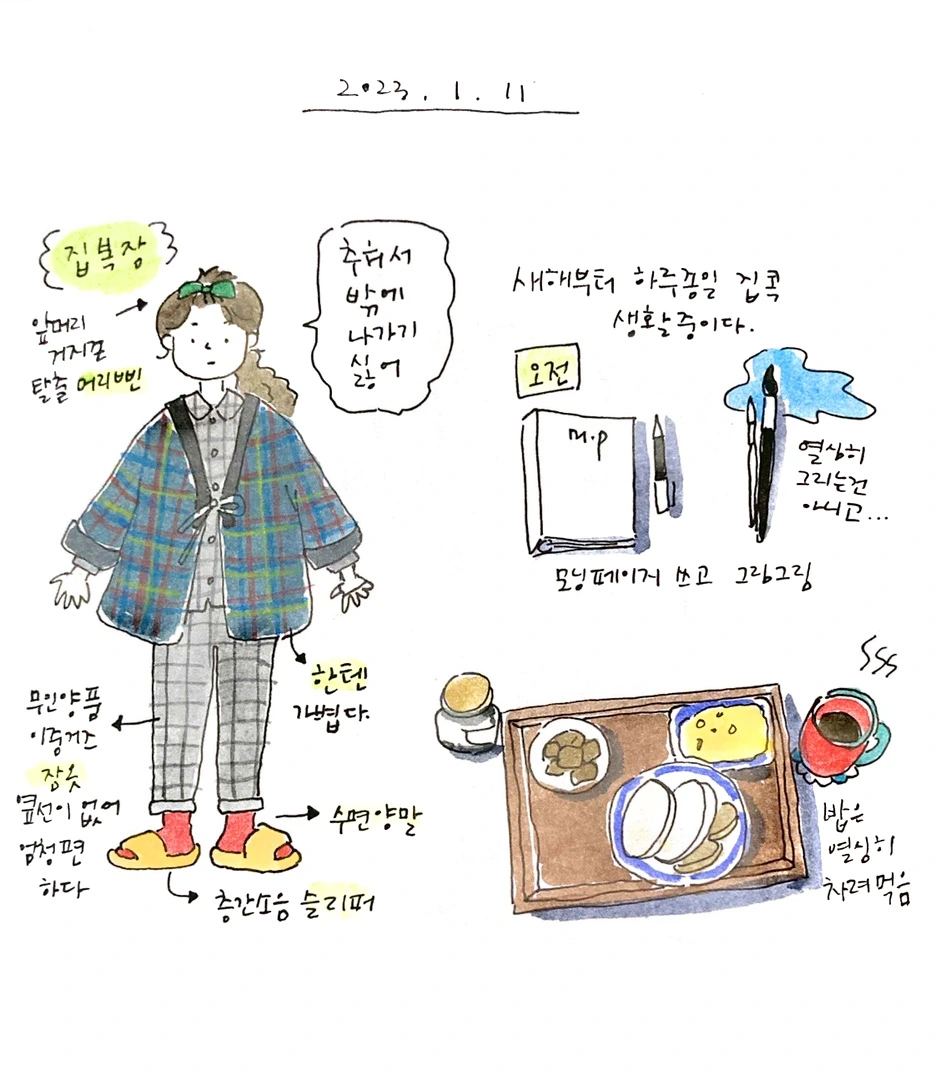 2023. 1. 11
집복장
앞머리
거지존
탈출 머리삔
추워서
밖에
나가기
싫어
한텐
가볍다.
무인양품
이중거즈
잠옷
옆선이 없어
엄청 편
하다
수면양말
층간소음 슬리퍼
새해부터 하루종일 집콕
생활중이다.
오전
m.p
열심히
그리는건
아니고...
모닝페이지 쓰고 그림그림
밥은
열심히
차려먹음